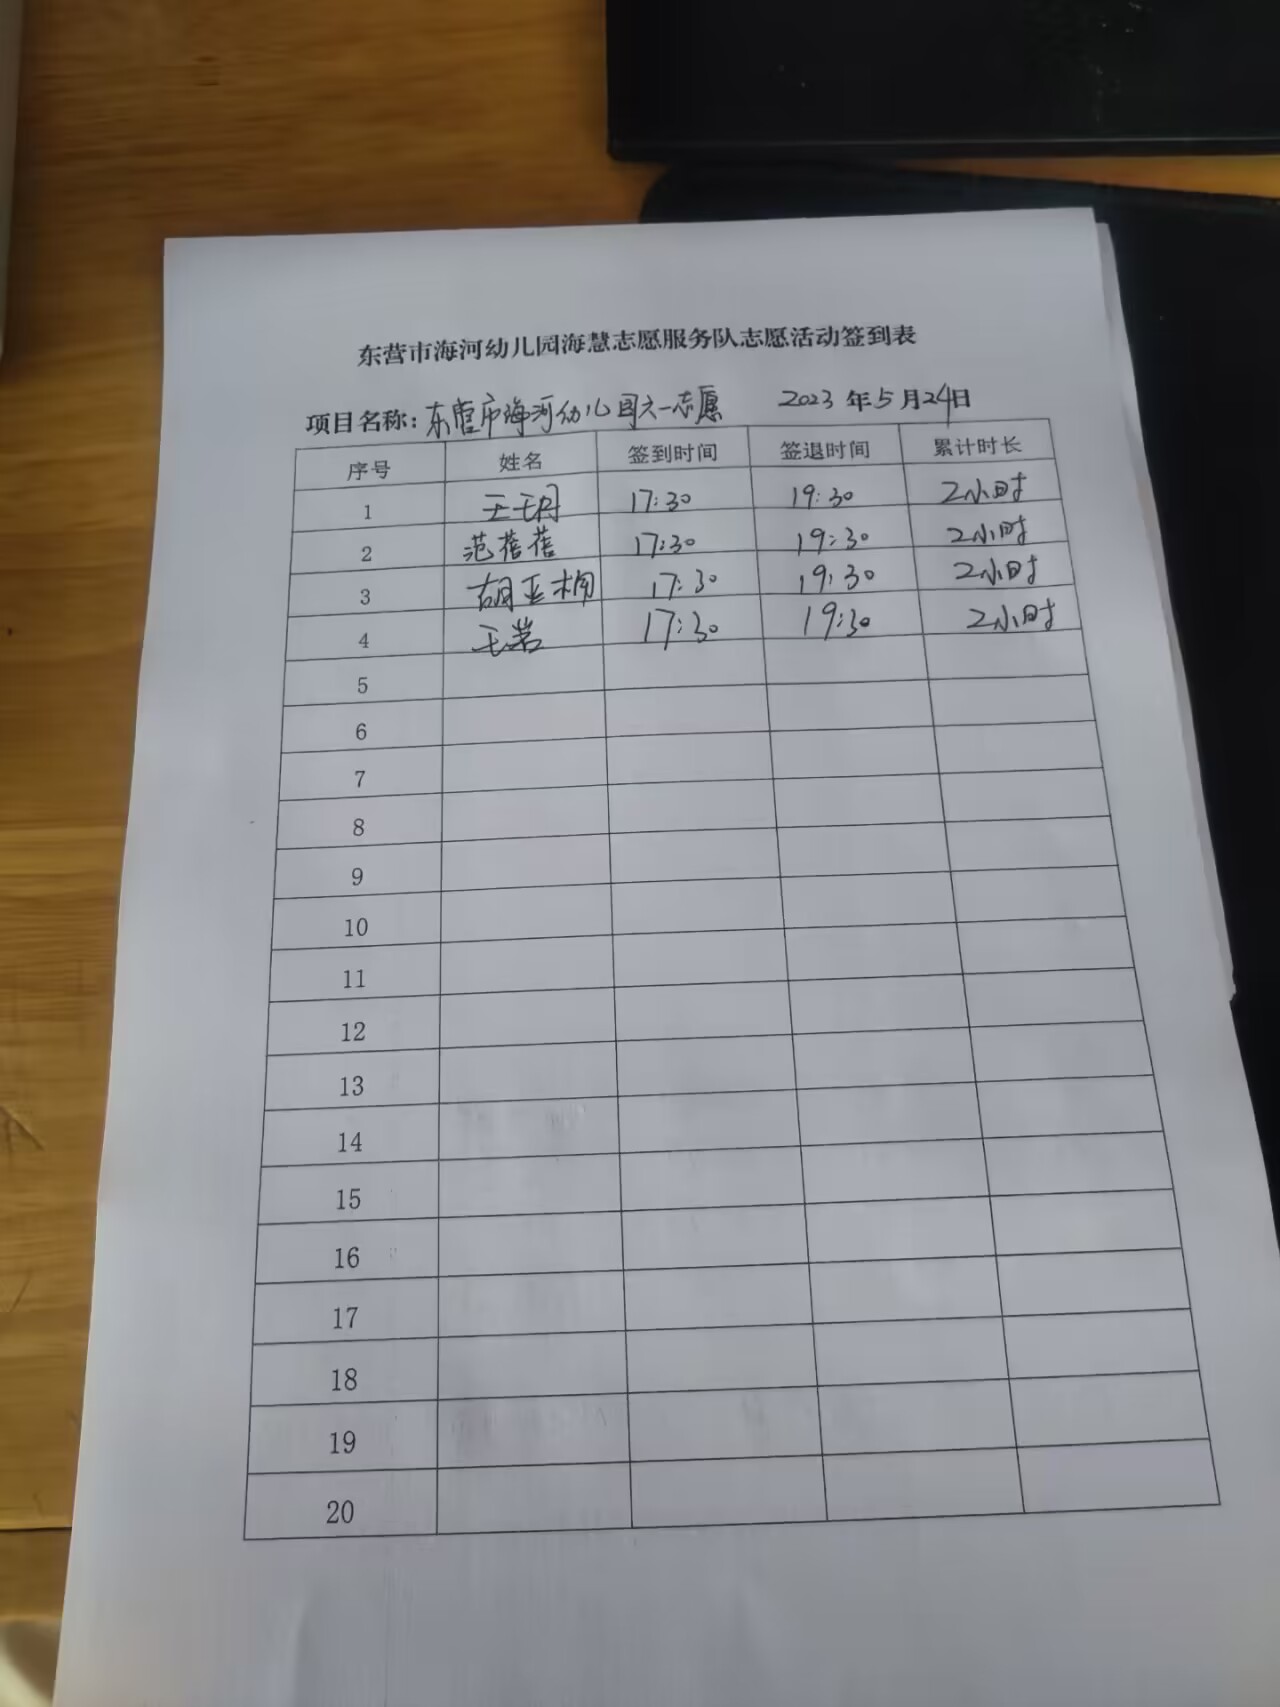 东营市海河幼儿园海慧志愿服务队志愿活动签到表
项目名称:东营市海河幼儿园六一志愿 2023年5月24日
序号 姓名 签到时间 签退时间 累计时长
1 17:30 19:30 2小时
2 范蓓蓓 17:30 19:30 2小时
3 胡亚楠 17:30 19:30 2小时
4 17:30 19:30 2小时
5
6
7
8
9
10
11
12
13
14
15
16
17
18
19
20